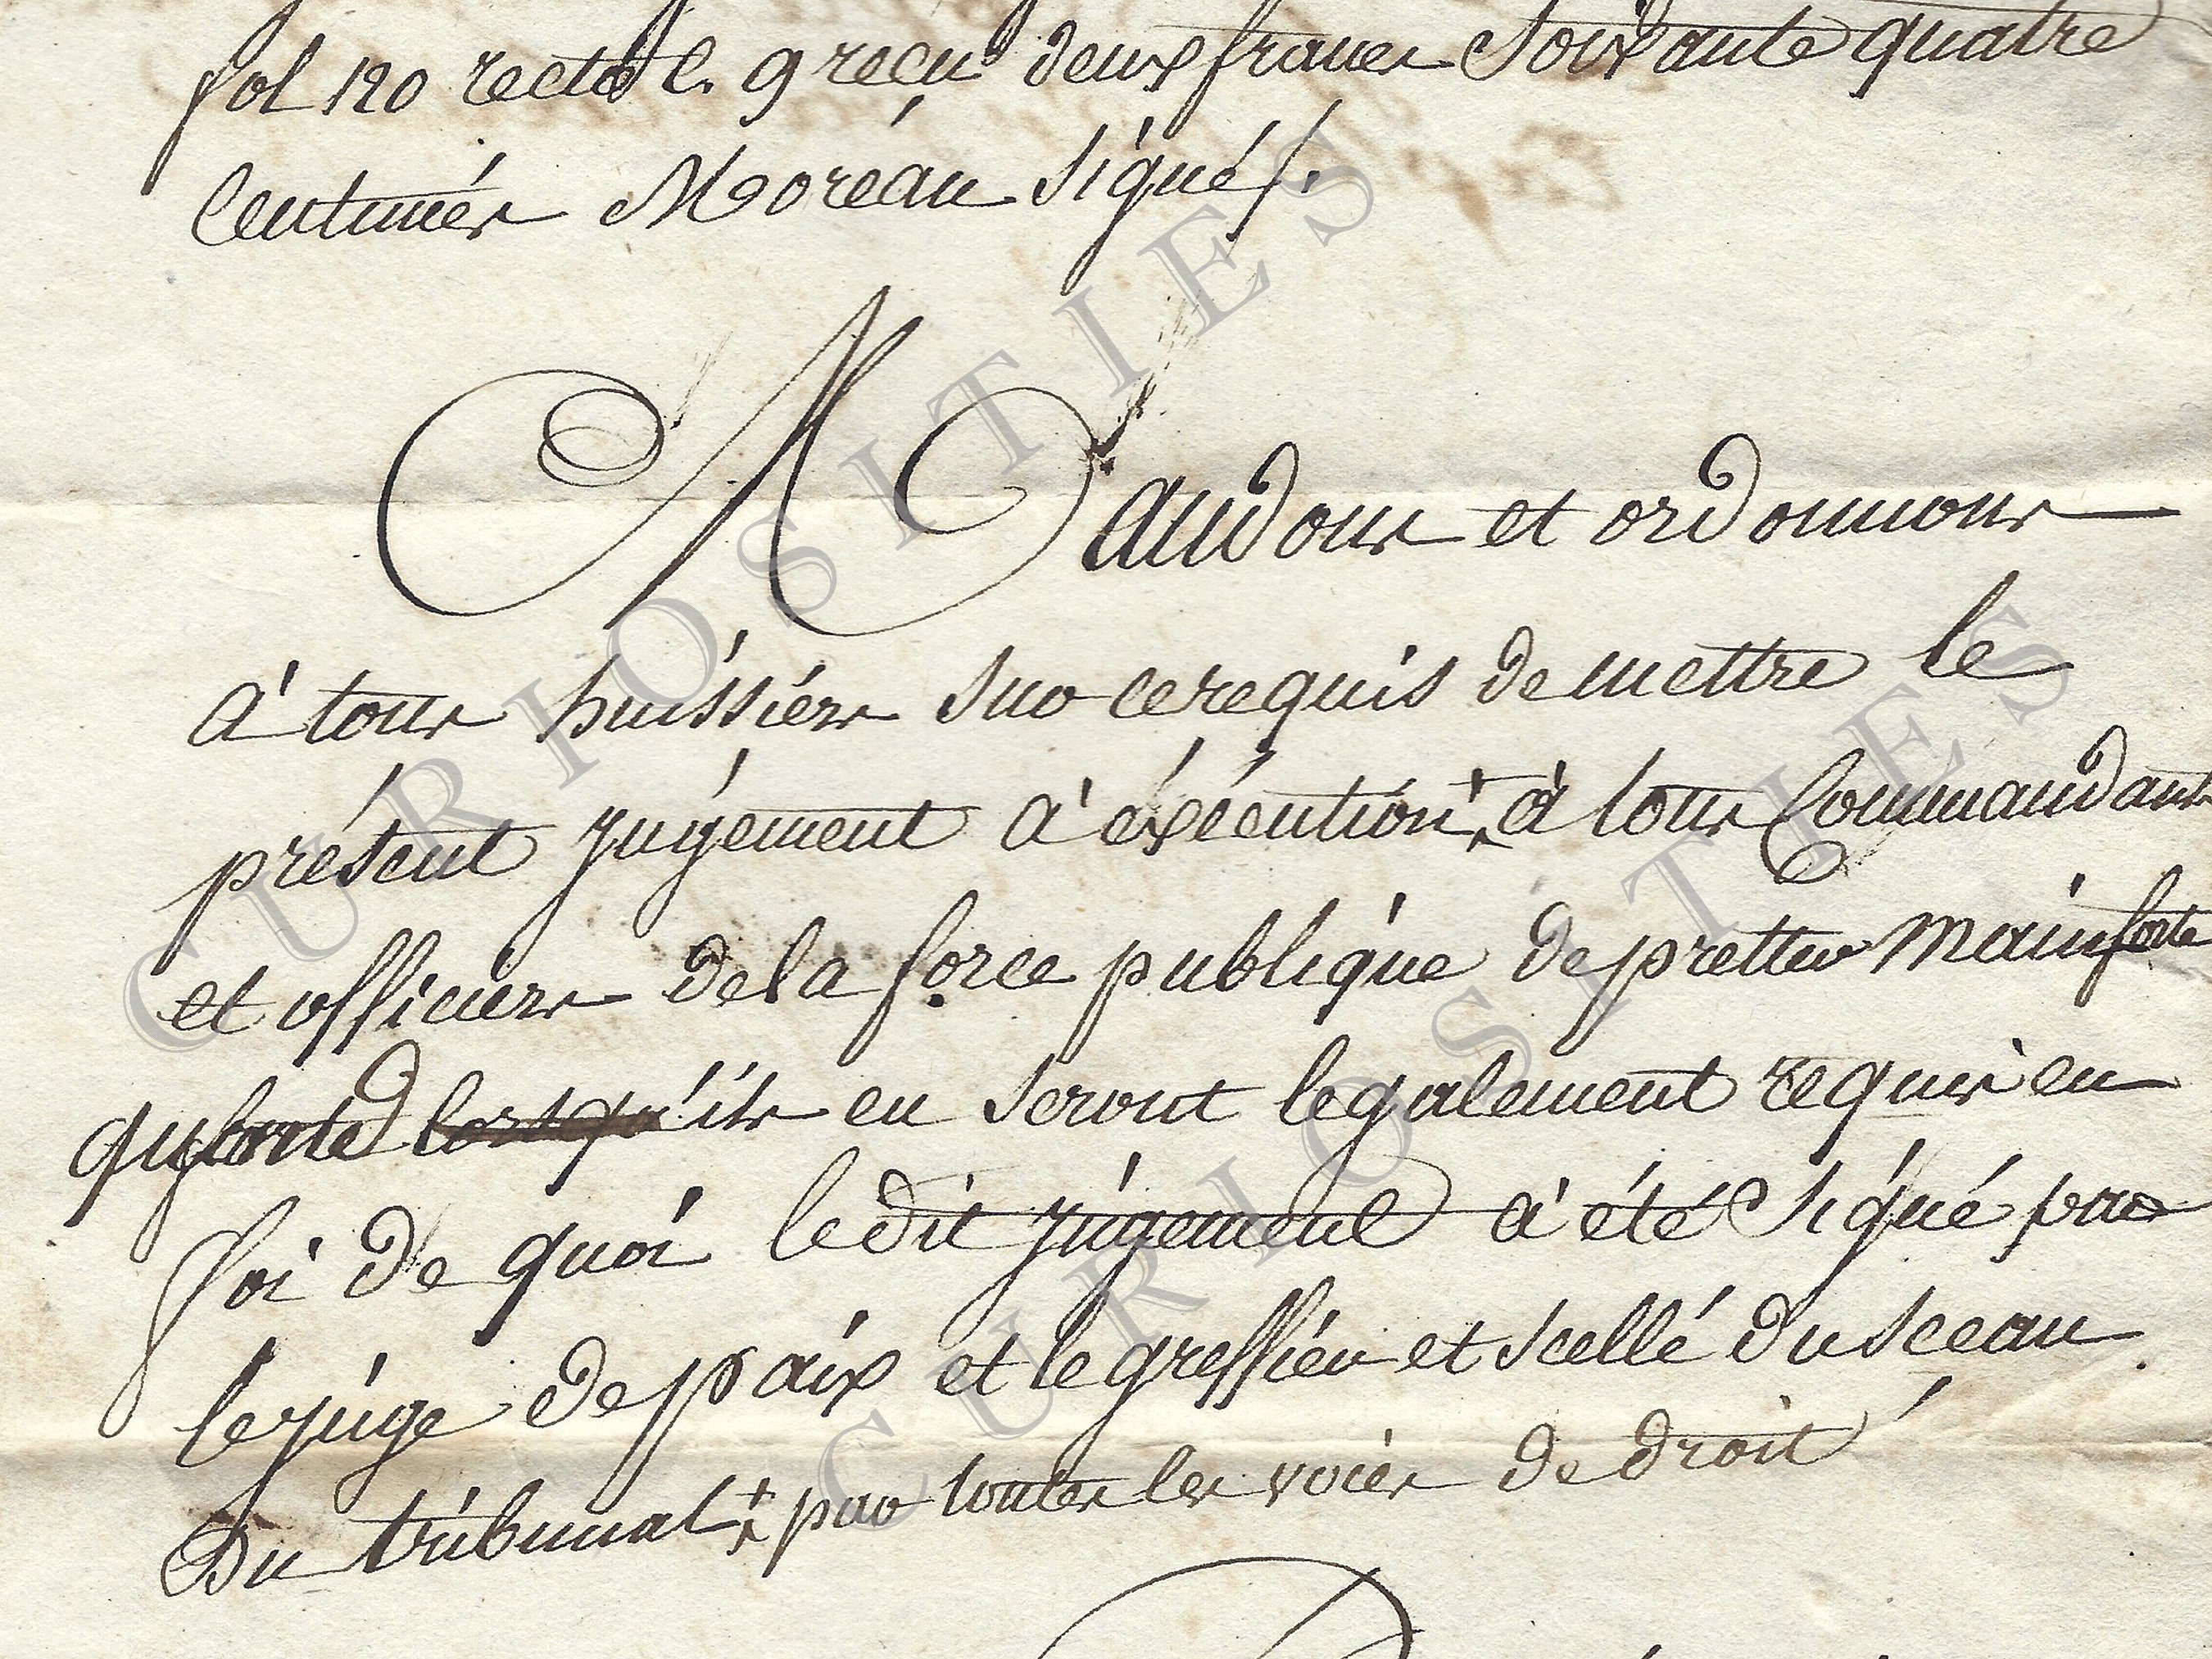 fol 120 recto c. 9 reçu deux francs soixante quatre
Centimes Moreau signé/.
Mandons et ordonnons
à tous huissiers sur ce requis de mettre le
présent jugement à éxécution, à tous Commandants
et officiers de la force publique de pretter main forte
lorsqu'ils en seront legalement requis en
foi de quoi le dit jugement à été signé par
le juge de paix et le greffier et scellé du sceau
Du tribunal par toutes les voies de droit
CURIOSITIES
CURIOSITIES